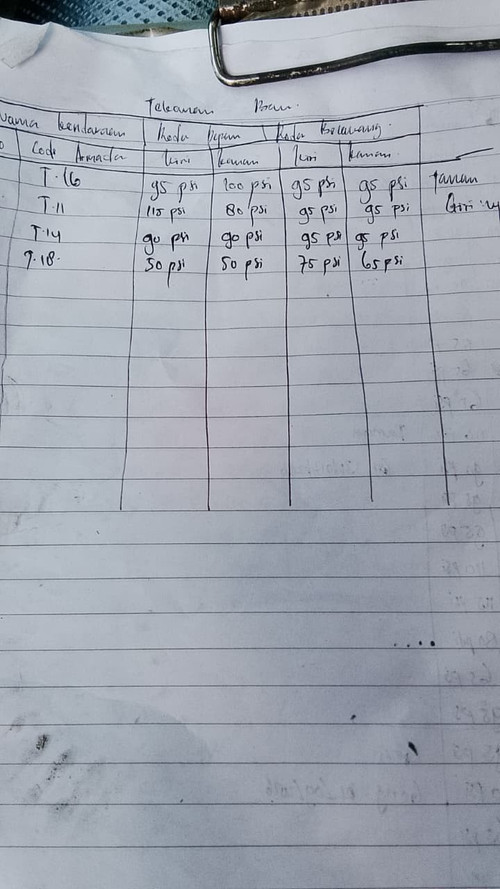 Tekanan Ban.
Nama kendaraan Roda Depan Roda Belakang.
Code Armada kiri kanan kiri kanan.
T.16 95 psi 100 psi 95 psi 95 psi
T.11 115 psi 80 psi 95 psi 95 psi
T.14 90 psi 90 psi 95 psi 95 psi
T.18. 50 psi 50 psi 75 psi 65 psi